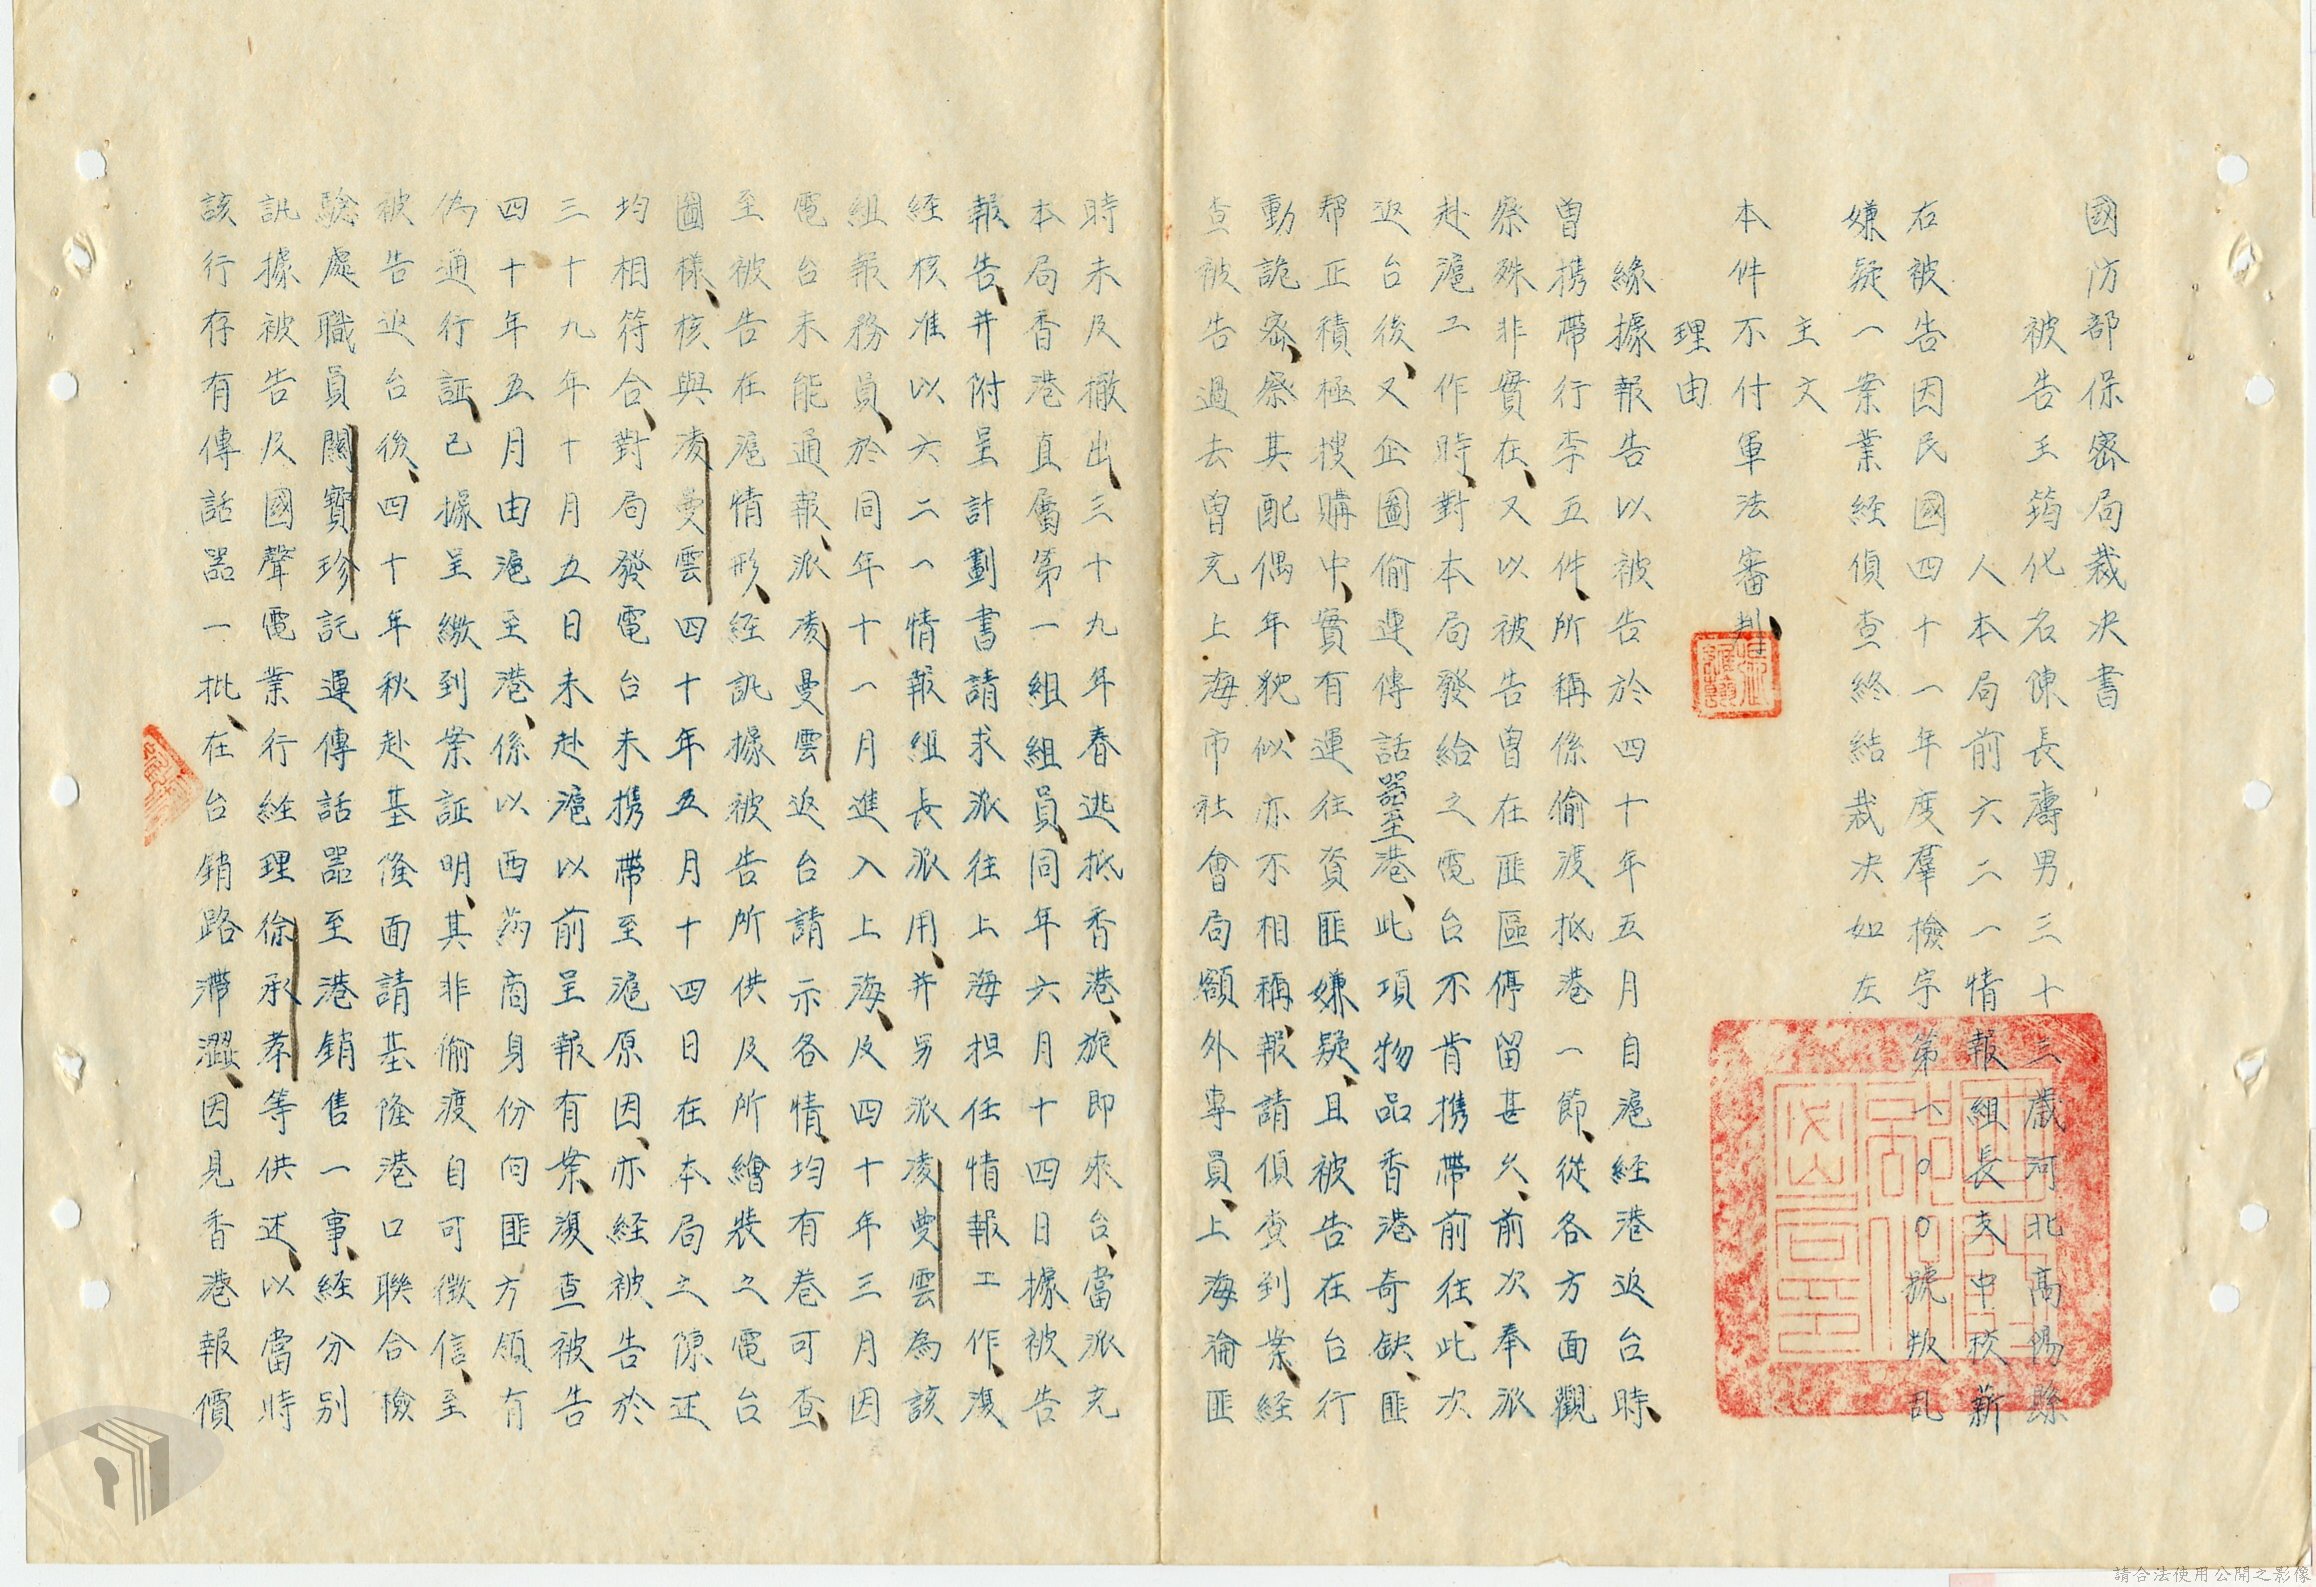 國防部保密局裁決書
被告王筠化名陳長壽男三十三歲河北高陽縣
人本局前六二一情報組長支中校薪
右被告因民國四十一年度羣檢字第一〇〇號叛乱
嫌疑一案業経偵查終結裁决如左
主文
本件不付軍法審判、
理由
緣據報告以被告於四十年五月自滬経港返台時、
曾携帶行李五件、所稱係偷渡抵港一節、從各方面觀
察殊非實在、又以被告曾在匪區停留甚久、前次奉派
赴滬工作時、對本局發給之電台不肯携帶前往、此次
返台後、又企圖偷運傳話器至港、此項物品香港奇缺、匪
帮正積極搜購中、實有運往資匪嫌疑、且被告在台行
動詭密、察其配偶年貌、似亦不相稱、報請偵查到業、経
查被告過去曾充上海市社會局額外專員、上海淪匪
時未及撤出、三十九年春逃抵香港、旋即來台、當派充
本局香港直屬第一組組員、同年六月十四日據被告
報告、并附呈計劃書請求派往上海担任情報工作、復
経核准以六二一情報組長派用、并另派凌曼雲為該
組報務員、於同年十一月進入上海、及四十年三月因
電台未能通報、派凌曼雲返台請示各情、均有卷可查、
至被告在滬情形、経訊據被告所供及所繪裝之電台
圖樣、核與凌曼雲四十年五月十四日在本局之陳述
均相符合、對局發電台未携帶至滬原因、亦経被告於
三十九年十月五日未赴滬以前呈報有案、復查被告
四十年五月由滬至港、係以西药商身份向匪方領有
偽通行証、已據呈繳到案証明、其非偷渡自可徵信、至
被告返台後、四十年秋赴基隆面請基隆港口聯合檢
驗處職員關寶珍託運傳話器至港銷售一事、経分別
訊據被告及國聲電業行経理徐承孝等供述、以當時
該行存有傳話器一批、在台銷路滯澀、因見香港報價
請合法使用公開之影像